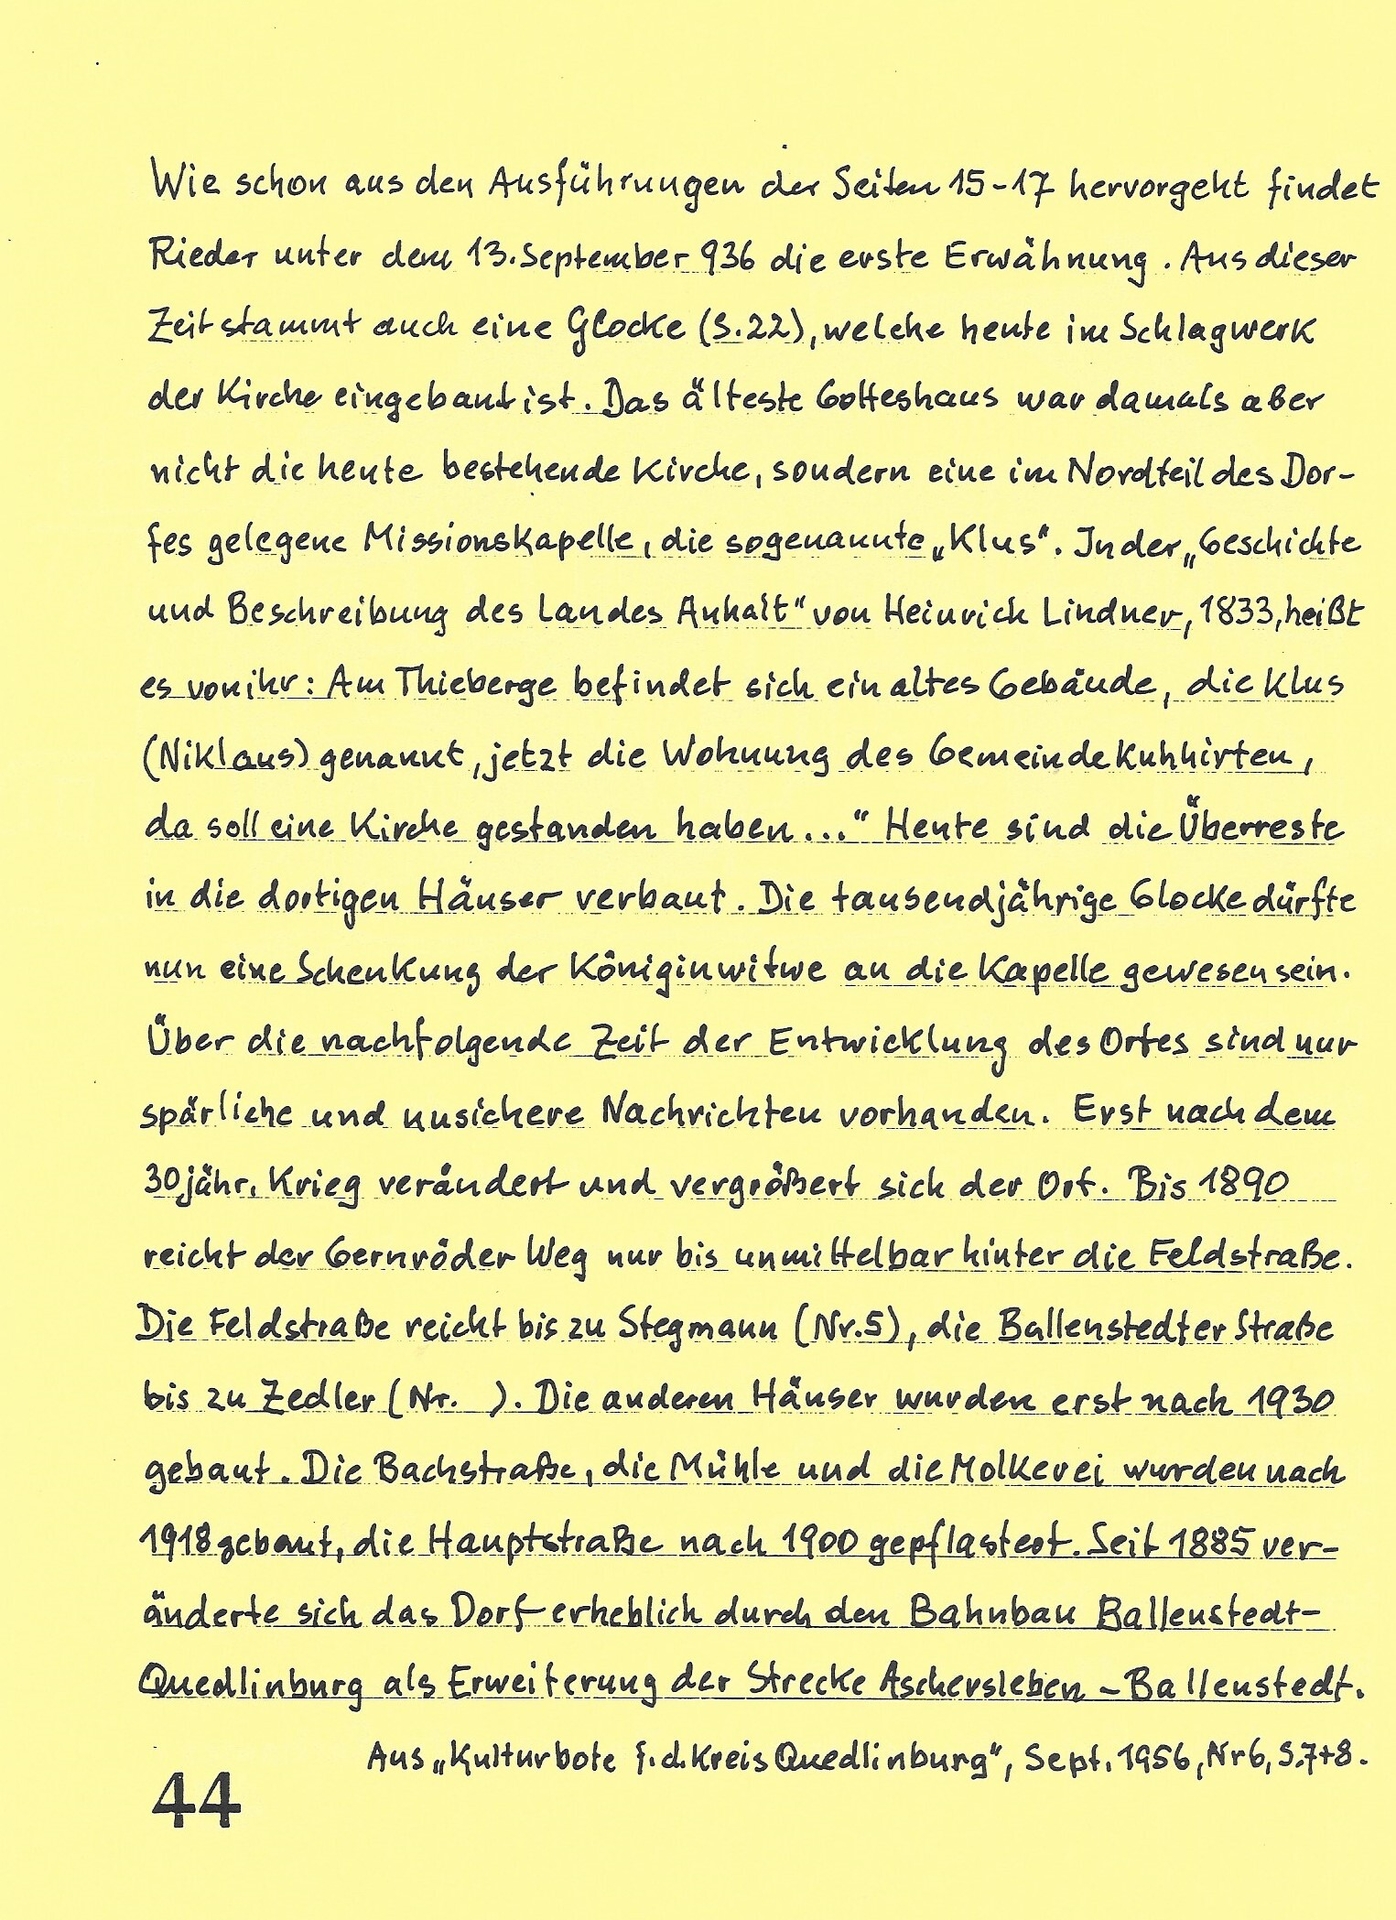 Wie schon aus den Ausführungen der Seiten 15-17 hervorgeht findet
Rieder unter dem 13. September 936 die erste Erwähnung. Aus dieser
Zeit stammt auch eine Glocke (S.22), welche heute im Schlagwerk
der Kirche eingebaut ist. Das älteste Gotteshaus war damals aber
nicht die heute bestehende Kirche, sondern eine im Nordteil des Dor-
fes gelegene Missionskapelle, die sogenannte „Klus“. In der „Geschichte
und Beschreibung des Landes Anhalt“ von Heinrich Lindner, 1833, heißt
es von ihr: Am Thieberge befindet sich ein altes Gebäude, die Klus
(Niklaus) genannt, jetzt die Wohnung des Gemeindekuhhirten,
da soll eine Kirche gestanden haben...“ Heute sind die Überreste
in die dortigen Häuser verbaut. Die tausendjährige Glocke dürfte
nun eine Schenkung der Königinwitwe an die Kapelle gewesen sein.
Über die nachfolgende Zeit der Entwicklung des Ortes sind nur
spärliche und unsichere Nachrichten vorhanden. Erst nach dem
30jähr. Krieg verändert und vergrößert sich der Ort. Bis 1890
reicht der Gernröder Weg nur bis unmittelbar hinter die Feldstraße.
Die Feldstraße reicht bis zu Stegmann (Nr.5), die Ballenstedter Straße
bis zu Zedler (Nr. ). Die anderen Häuser wurden erst nach 1930
gebaut. Die Bachstraße, die Mühle und die Molkerei wurden nach
1918 gebaut, die Hauptstraße nach 1900 gepflastert. Seit 1885 ver-
änderte sich das Dorf erheblich durch den Bahnbau Ballenstedt-
Quedlinburg als Erweiterung der Strecke Aschersleben - Ballenstedt.
Aus „Kulturbote f.d. Kreis Quedlinburg“, Sept. 1956, Nr6, S.7+8.
44